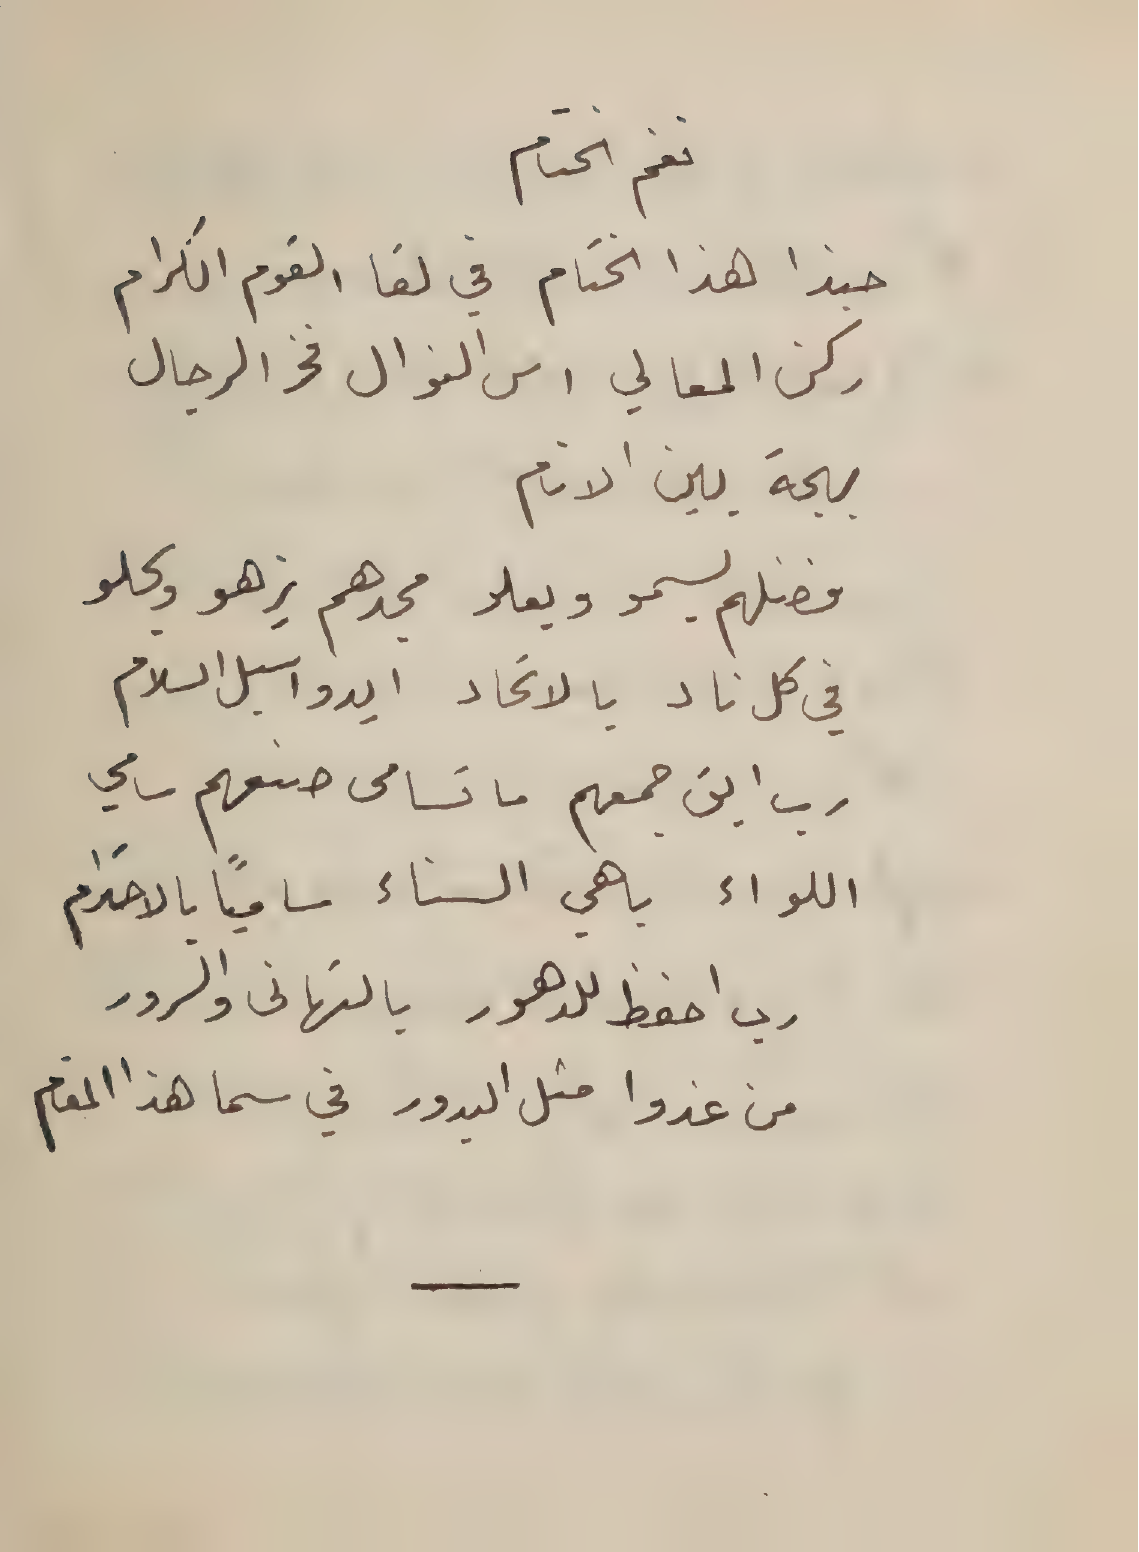 نغم الختام
حبذا هذا الختام في لقا القوم الكرام
ركن المعالي اس النوال فخر الرجال
بهجة بين الانام
فضلهم يسمو ويعلو مجدهم يزهو ويحلو
في كل ناد بالاتحاد ايدوا سبل السلام
رب ابق جمعهم ما تسامى صنعهم سامي
اللواء باهي السناء ساميًا بالاحترام
رب احفظ للدهور بالتهانى والسرور
من غذوا مثل البدور في سما هذا المقام